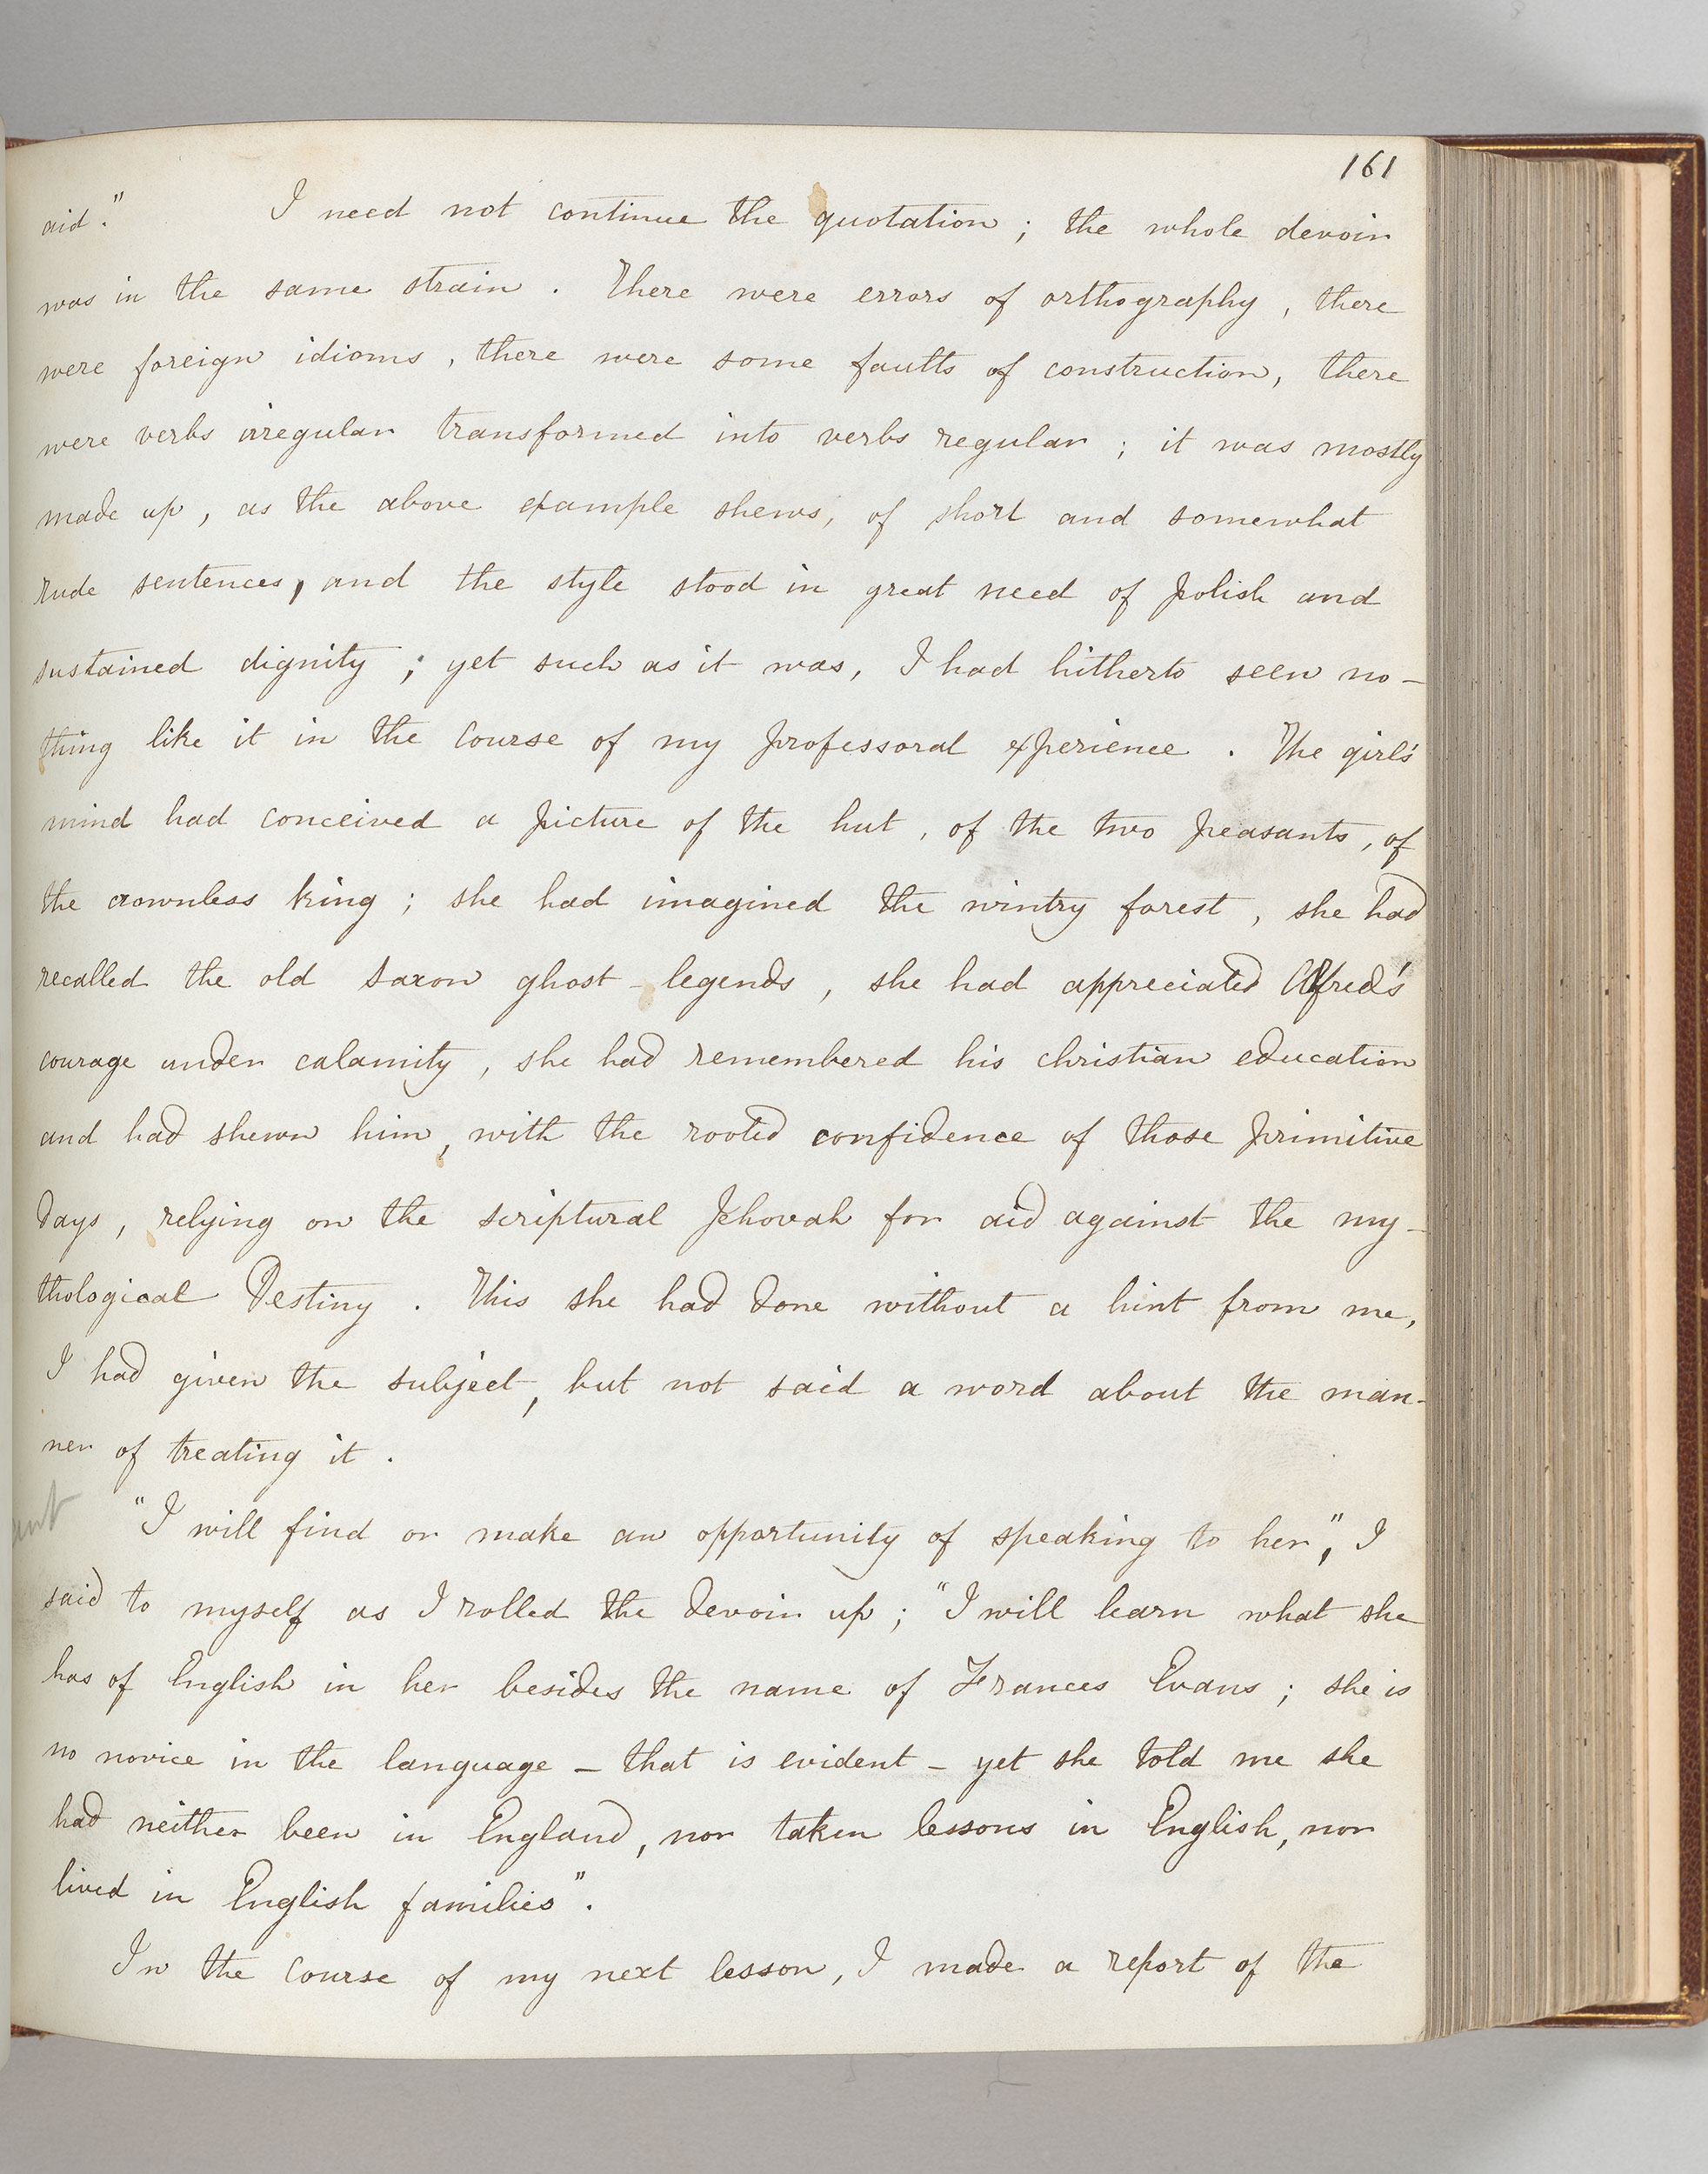 161
aid." I need not continue the quotation ; the whole devoir
was in the same strain . There were errors of orthography , there
were foreign idioms , there were some faults of construction, there
were verbs irregular transformed into verbs regular ; it was mostly
made up , as the above example shews, of short and somewhat
rude sentences, and the style stood in great need of polish and
sustained dignity ; yet such as it was, I had hitherto seen no-
thing like it in the course of my professoral experience . The girl's
mind had conceived a picture of the hut , of the two peasants , of
the crownless king ; she had imagined the wintry forest , she had
recalled the old Saxon ghost-legends , she had appreciated Alfred's
courage under calamity , she had remembered his christian education
and had shewn him, with the rooted confidence of those primitive
days , relying on the scriptural Jehovah for aid against the my-
thological Destiny . This she had done without a hint from me,
I had given the subject, but not said a word about the man-
ner of treating it .
"I will find or make an opportunity of speaking to her", I
said to myself as I rolled the devoir up ; "I will learn what she
has of English in her besides the name of Frances Evans ; she is
no novice in the language - that is evident - yet she told me she
had neither been in England, nor taken lessons in English, nor
lived in English families".
In the course of my next lesson, I made a report of the